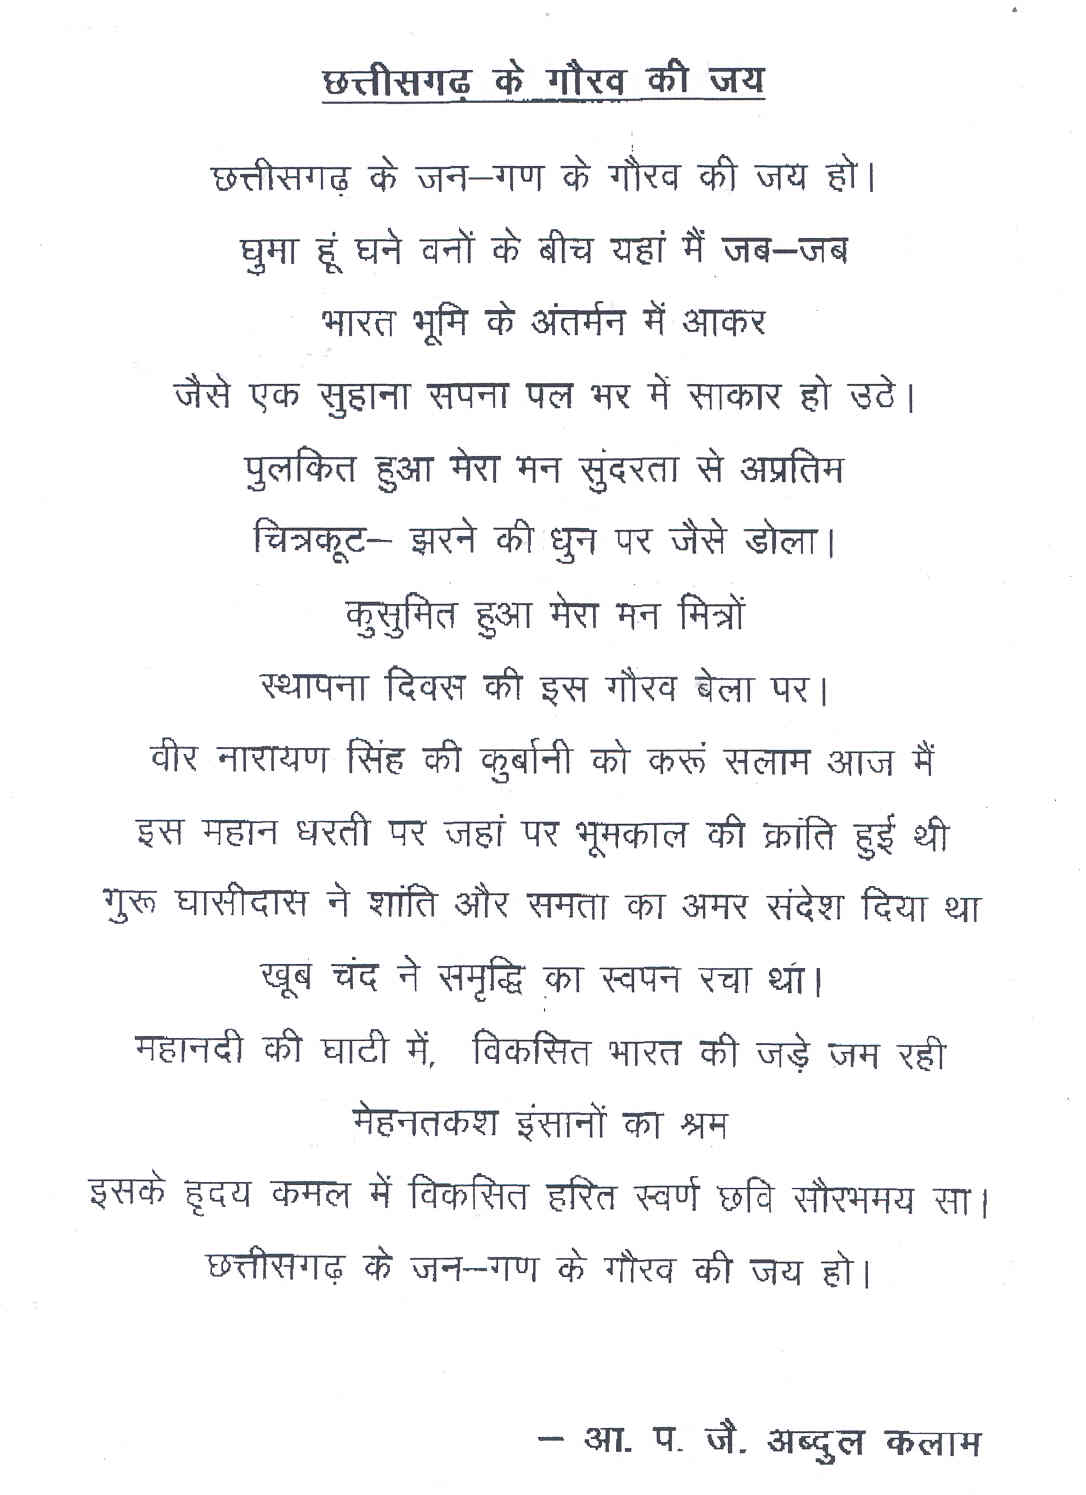 छत्तीसगढ़ के गौरव की जय
छत्तीसगढ़ के जन–गण के गौरव की जय हो।
घुमा हूं घने वनों के बीच यहां मैं जब–जब
भारत भूमि के अंतर्मन में आकर
जैसे एक सुहाना सपना पल भर में साकार हो उठे।
पुलकित हुआ मेरा मन सुंदरता से अप्रतिम
चित्रकूट– झरने की धुन पर जैसे डोला।
कुसुमित हुआ मेरा मन मित्रों
स्थापना दिवस की इस गौरव बेला पर।
वीर नारायण सिंह की कुर्बानी को करूं सलाम आज मैं
इस महान धरती पर जहां पर भूमकाल की क्रांति हुई थी
गुरू घासीदास ने शांति और समता का अमर संदेश दिया था
खूब चंद ने समृद्धि का स्वपन रचा था।
महानदी की घाटी में, विकसित भारत की जड़े जम रही
मेहनतकश इंसानों का श्रम
इसके हृदय कमल में विकसित हरित स्वर्ण छवि सौरभमय सा।
छत्तीसगढ़ के जन–गण के गौरव की जय हो।
– आ. प. जै. अब्दुल कलाम